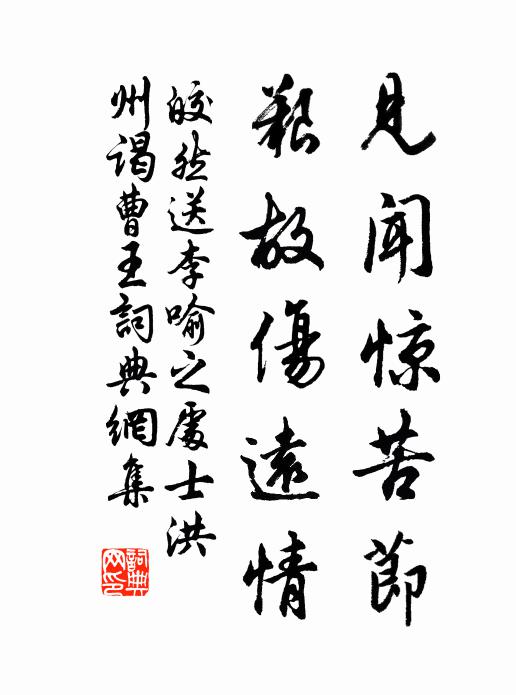 見聞惊苦節
艱故傷遠情
皎然送李喻之處士洪
州謁曹王詞典網集
詞典网印